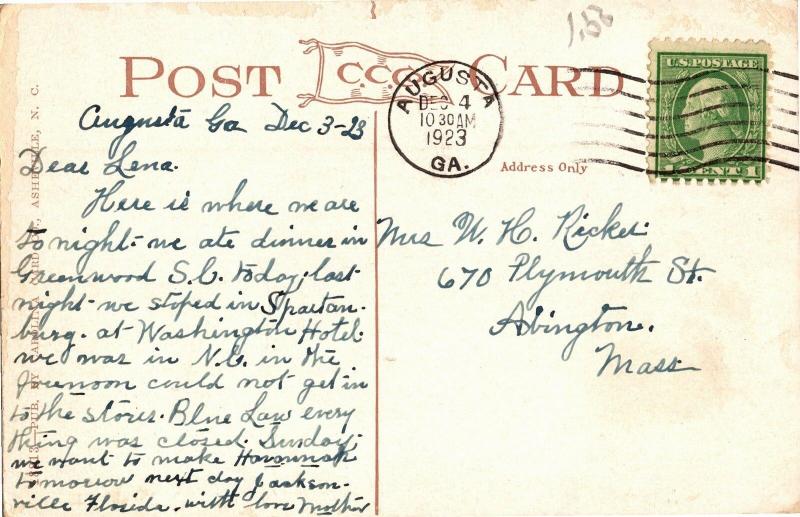 1.58
POST CARD
C.C.CO.
AUGUSTA
DEC 4
1030AM
1923
GA.
U.S. POSTAGE
1 CENT 1
Address Only
Augusta Ga Dec 3-23
Dear Lena.
Here is where we are
to night- we ate dinner in
Greenwood S.C. today, last
night we stoped in Spartan-
burg. at Washington Hotel.
we was in N.C. in the
forenoon could not get in
to the stores. Blue Law every
thing was closed. Sunday,
we want to make Havannah
tomorrow next day Jackson-
ville Florida. with love Mother
Mrs W. H. Ricker
670 Plymouth St.
Abington.
Mass
PUB. BY CAROLINA CARD CO., ASHEVILLE, N. C.